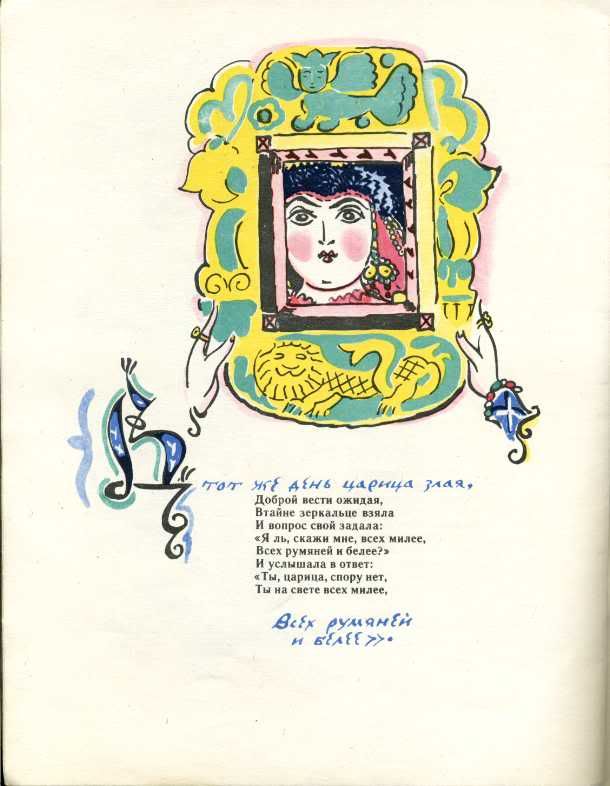 В тот же день царица злая,
Доброй вести ожидая,
Втайне зеркальце взяла
И вопрос свой задала:
«Я ль, скажи мне, всех милее,
Всех румяней и белее?»
И услышала в ответ:
«Ты, царица, спору нет,
Ты на свете всех милее,
Всех румяней
и белее».